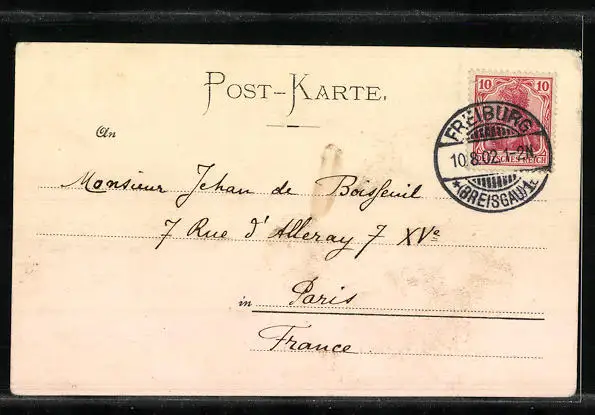 POST-KARTE.
10 10
DEUTSCHES REICH
FREIBURG
10.8.02.1-2N.
*(BREISGAU)1*
An
Monsieur Jehan de Boisseuil
7 Rue d'Alleray 7 XVe
in Paris
France